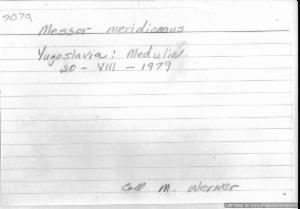 7079
Messor meridionaus
Yugoslavia: Medulin
20 - VIII - 1979
Coll M. Werner